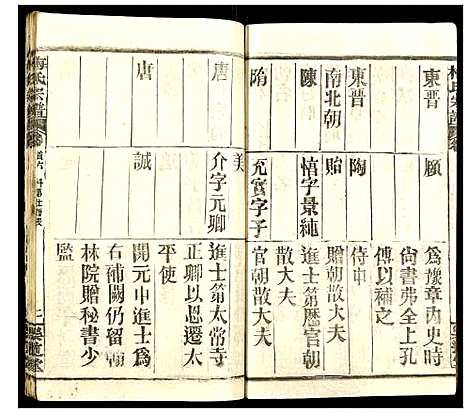 東晉
頤
為豫章內史時
尚書弗全上孔
傅以補之
東晉
陶
侍中
南北朝
貽
贈朝散大夫
陳
愭字景純
進士第歷官朝
散大夫
隋
充實字子
美
官朝散大夫
唐
介字元卿
進士第太常寺
正卿以恩遷太
平使
唐
誠
開元中進士為
右補闕仍留翰
林院贈秘書少
監
梅氏宗譜